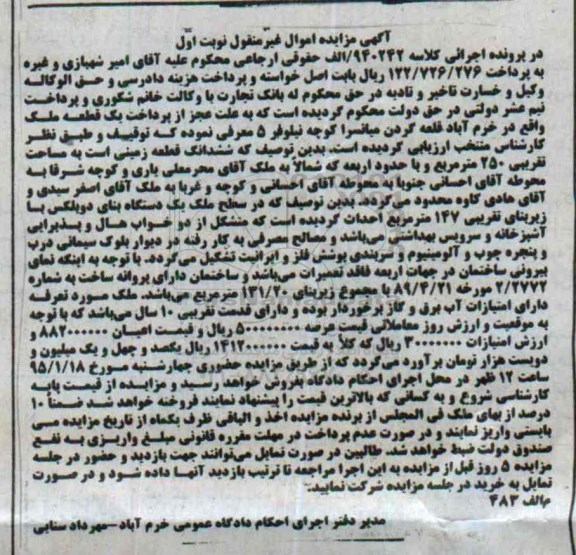 آگهی مزایده اموال غیرمنقول نوبت اول
در پرونده اجرائی کلاسه ۹۴۰۲۴۲/الف حقوقی ارجاعی محکوم علیه آقای امیر شهبازی و غیره
به پرداخت ۱۲۲/۷۲۶/۲۷۶ ریال بابت اصل خواسته و پرداخت هزینه دادرسی و حق الوکاله
وکیل و خسارت تاخیر و تادیه در حق محکوم له بانک تجارت با وکالت خانم شکوری و پرداخت
نیم عشر دولتی در حق دولت محکوم گردیده است که به علت عجز از پرداخت یک قطعه ملک
واقع در خرم آباد قلعه گردن میانسرا کوچه نیلوفر ۵ معرفی نموده که توقیف و طبق نظر
کارشناس منتخب ارزیابی گردیده است. بدین توصیف که ششدانگ قطعه زمینی است به مساحت
تقریبی ۲۵۰ مترمربع و با حدود اربعه که شمالاً به ملک آقای محرمعلی یاری و کوچه شرقا به
محوطه آقای احسانی جنوبا به محوطه آقای احسانی و کوچه و غربا به ملک آقای اصغر سیدی و
آقای هادی کاوه محدود می‌گردد. بدین توصیف که در سطح ملک یک دستگاه بنای دوبلکس با
زیربنای تقریبی ۱۴۷ مترمربع احداث گردیده است که متشکل از دو خواب هال و پذیرایی
آشپزخانه و سرویس بهداشتی می‌باشد و مصالح مصرفی به کار رفته در دیوار بلوک سیمانی درب
و پنجره چوب و آلومینیوم و سربندی پوشش فلز و ایرانیت تشکیل می‌گردد. با توجه به اینکه نمای
بیرونی ساختمان در جهات اربعه فاقد تعمیرات می‌باشد و ساختمان دارای پروانه ساخت به شماره
۲/۲۷۷۲ مورخه ۸۹/۴/۲۱ با مجموع زیربنای ۱۳۱/۲۰ مترمربع می‌باشد. ملک مورد تعرفه
دارای امتیازات آب برق و گاز برخوردار بوده و دارای قدمت تقریبی ۱۰ سال می‌باشد که با توجه
به موقعیت و ارزش روز معاملاتی قیمت عرصه ۵۰۰۰۰۰۰۰۰ ریال و قیمت اعیان ۸۸۲۰۰۰۰۰۰ و
ارزش امتیازات ۳۰۰۰۰۰۰۰ ریال که کلاً به قیمت ۱۴۱۲۰۰۰۰۰۰ ریال یکصد و چهل و یک میلیون و
دویست هزار تومان برآورد می‌گردد که از طریق مزایده حضوری چهارشنبه مورخ ۹۵/۱/۱۸
ساعت ۱۲ ظهر در محل اجرای احکام دادگاه بفروش خواهد رسید و مزایده از قیمت پایه
کارشناسی شروع و به کسانی که بالاترین قیمت را پیشنهاد نمایند فروخته خواهد شد ضمناً ۱۰
درصد از بهای ملک فی المجلس از برنده مزایده اخذ و الباقی ظرف یکماه از تاریخ مزایده می
بایستی واریز نمایند و در صورت عدم پرداخت در مهلت مقرره قانونی مبلغ واریزی به نفع
صندوق دولت ضبط خواهد شد. طالبین در صورت تمایل می‌توانند جهت بازدید و حضور در جلسه
مزایده ۵ روز قبل از مزایده به این اجرا مراجعه تا ترتیب بازدید آنها داده شود و در صورت
تمایل به خرید در جلسه مزایده شرکت نمایید.
م/الف ۴۸۳
مدیر دفتر اجرای احکام دادگاه عمومی خرم آباد–مهرداد سنایی